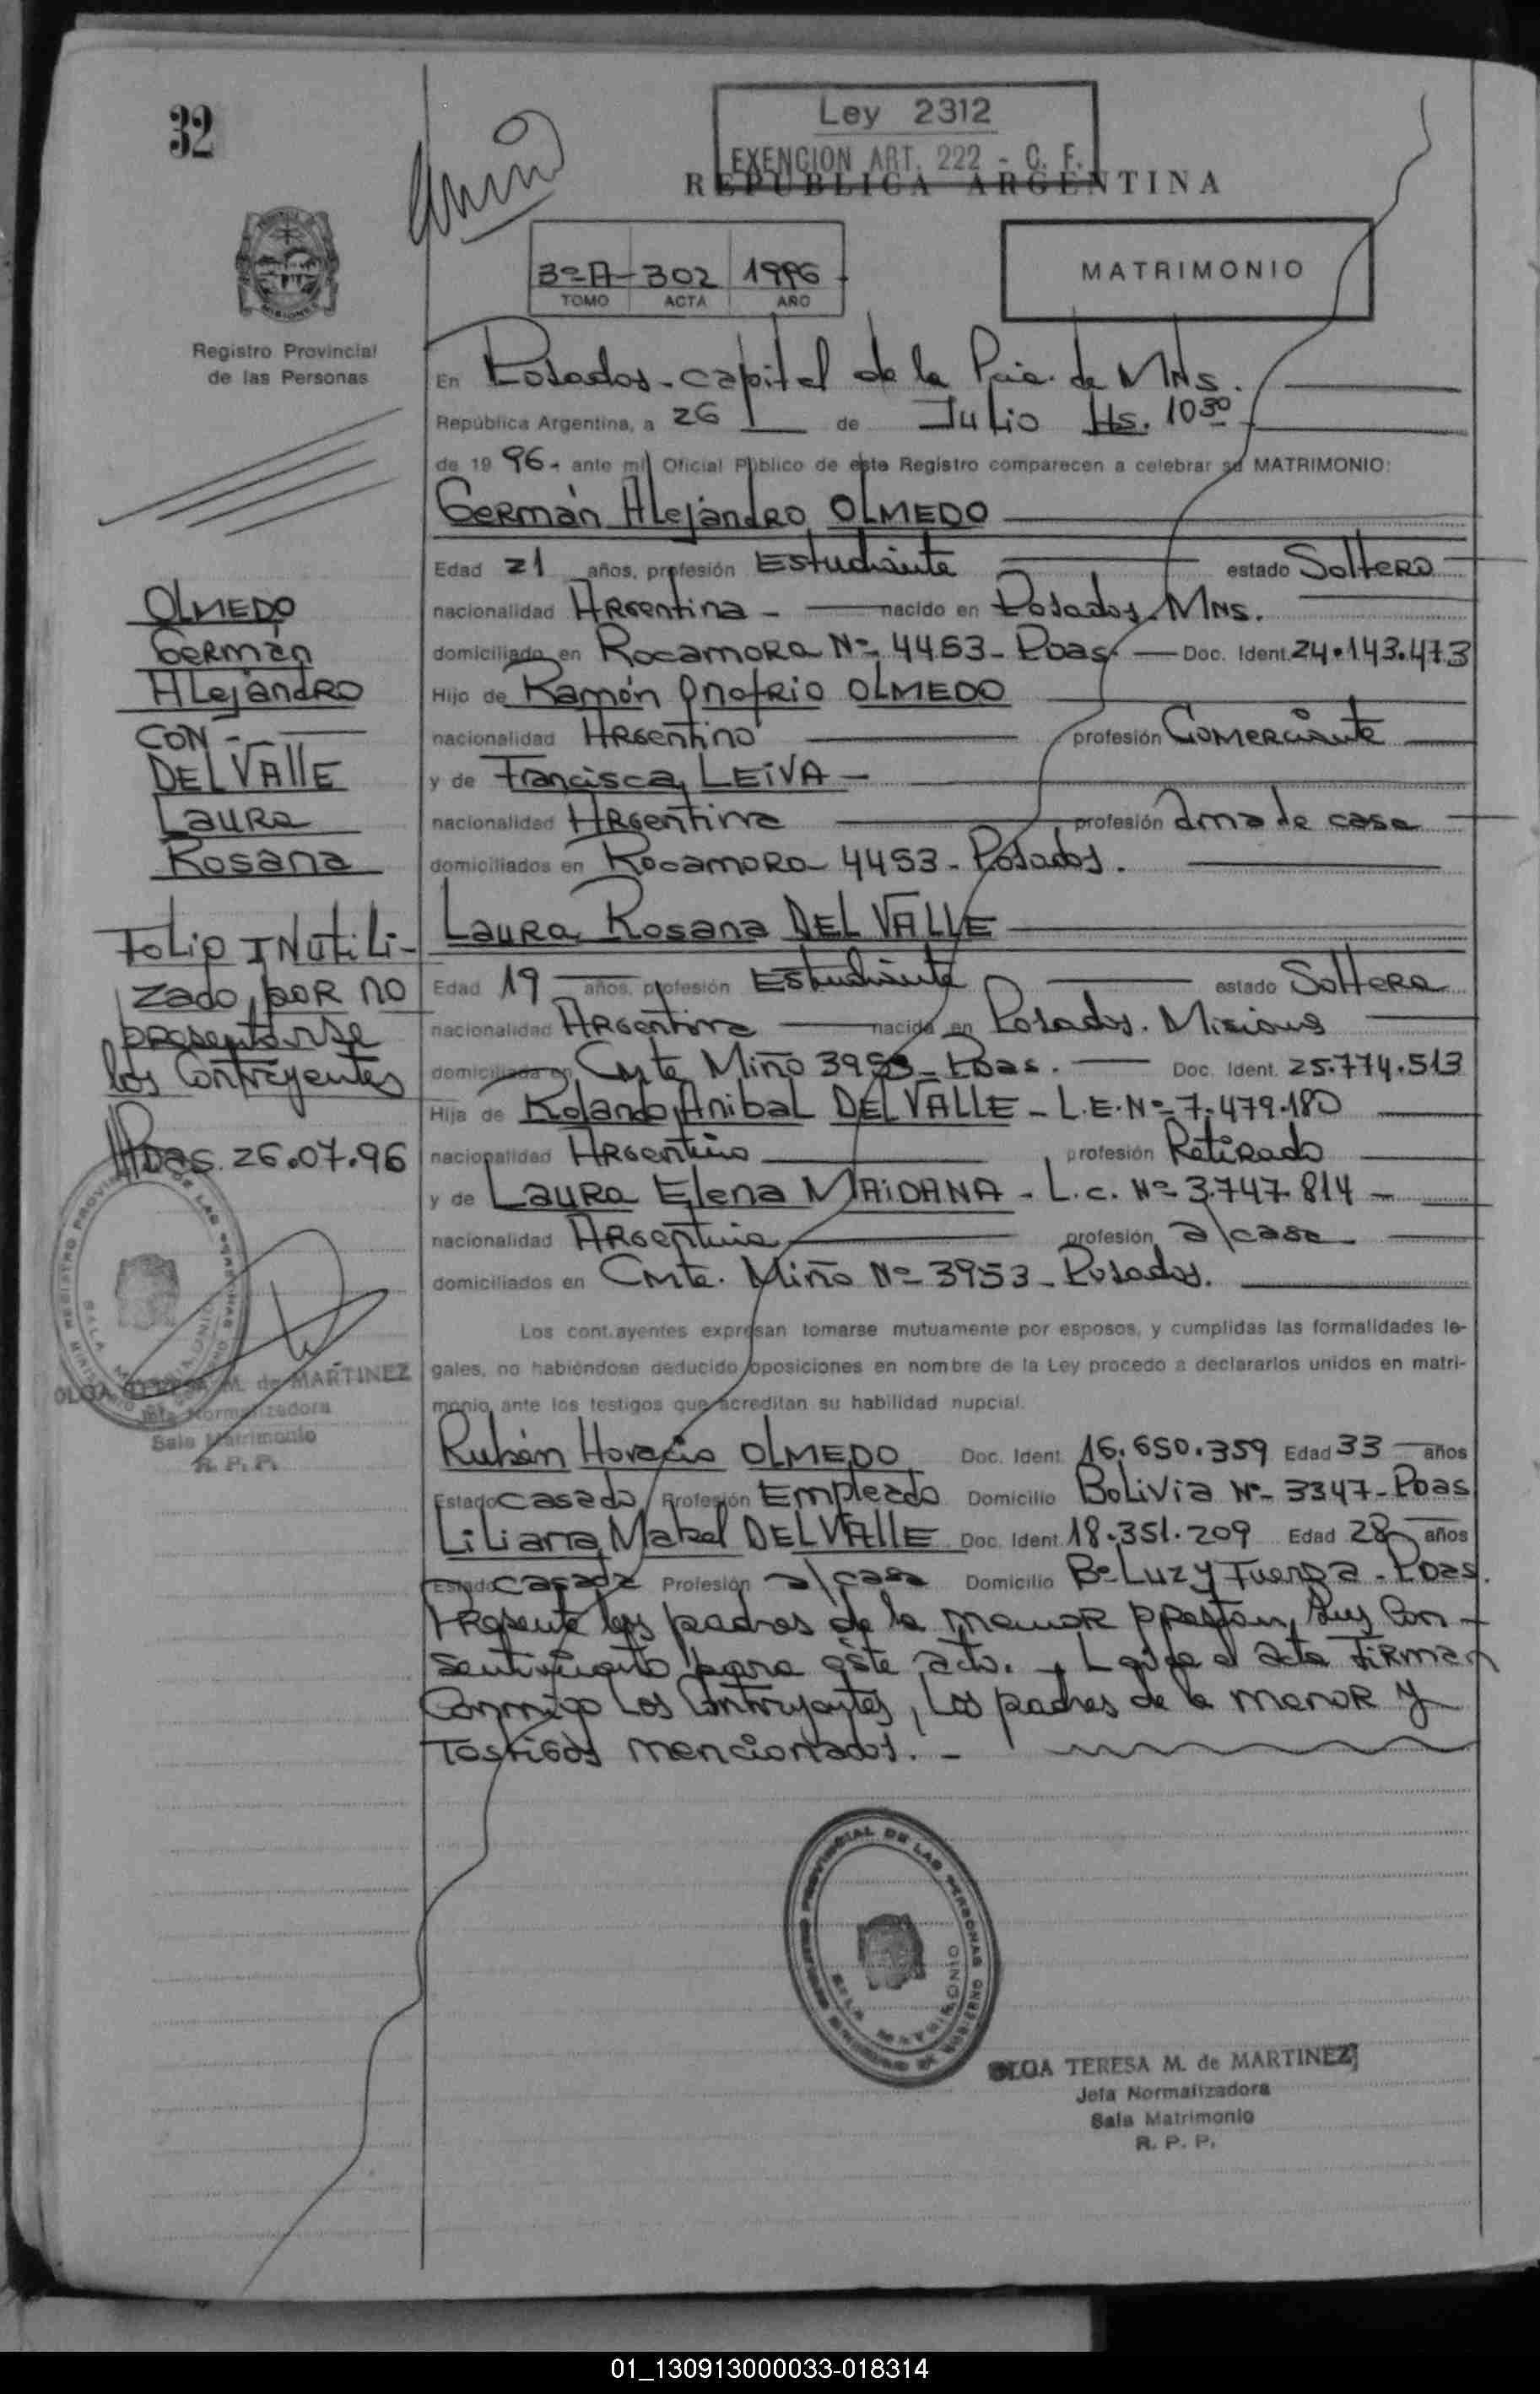 32
Ley 2312
EXENCION ART. 222 - C. F.
REPUBLICA ARGENTINA
3º-A- 302 1996
TOMO ACTA AÑO
MATRIMONIO
Registro Provincial
de las Personas
En Posadas - capital de la Pcia. de MNS.
República Argentina, a 26 de Julio Hs. 10 30
de 19 96.- ante mi Oficial Público de este Registro comparecen a celebrar su MATRIMONIO:
Germán Alejandro OLMEDO
Edad 21 años, profesión Estudiante estado Soltero
nacionalidad Argentina - nacido en Posadas. MNS.
domiciliado en Rocamora Nº 4453 - Pdas. Doc. Ident. 24.143.473
Hijo de Ramón Onofrio OLMEDO
nacionalidad Argentino profesión Comerciante
y de Francisca LEIVA -
nacionalidad Argentina profesión ama de casa
domiciliados en Rocamora 4453 - Posadas.
Laura Rosana DEL VALLE
Edad 19 años, profesión Estudiante estado Soltera
nacionalidad Argentina nacida en Posadas. Misiones
domiciliada en Cmte Miño 3953 - Pdas. Doc. Ident. 25.774.513
Hija de Rolando Anibal DEL VALLE - L.E. Nº 7.479.180
nacionalidad Argentino profesión Retirado
y de Laura Elena MAIDANA - L.C. Nº 3.747.814 -
nacionalidad Argentina profesión a/casa
domiciliados en Cmte. Miño Nº 3953 - Posadas.
Los contrayentes expresan tomarse mutuamente por esposos, y cumplidas las formalidades le-
gales, no habiéndose deducido oposiciones en nombre de la Ley procedo a declararlos unidos en matri-
monio ante los testigos que acreditan su habilidad nupcial.
Rubén Horacio OLMEDO Doc. Ident. 16.650.359 Edad 33 años
Estado casado Profesión Empleado Domicilio Bolivia Nº 3347 - Pdas
Liliana Mabel DEL VALLE Doc. Ident. 18.351.209 Edad 28 años
Estado casada Profesión a/casa Domicilio Bº Luz y Fuerza - Pdas.
Presente los padres de la menor prestan sus con-
sentimiento para éste acto. - Leída el acta firman
conmigo los contrayentes, los padres de la menor y
testigos mencionados. -
OLMEDO
Germán
Alejandro
CON -
DEL VALLE
Laura
Rosana
Folio Inutili-
zado, por no
presentarse
los contrayentes
Pdas. 26.07.96
REGISTRO PROVINCIAL DE LAS PERSONAS
SALA MATRIMONIO
OLGA TERESA M. de MARTINEZ
Jefa Normalizadora
Sala Matrimonio
R. P. P.
REGISTRO PROVINCIAL DE LAS PERSONAS
MINISTERIO DE GOBIERNO
SALA MATRIMONIO
OLGA TERESA M. de MARTINEZ
Jefa Normalizadora
Sala Matrimonio
R. P. P.
01_130913000033-018314